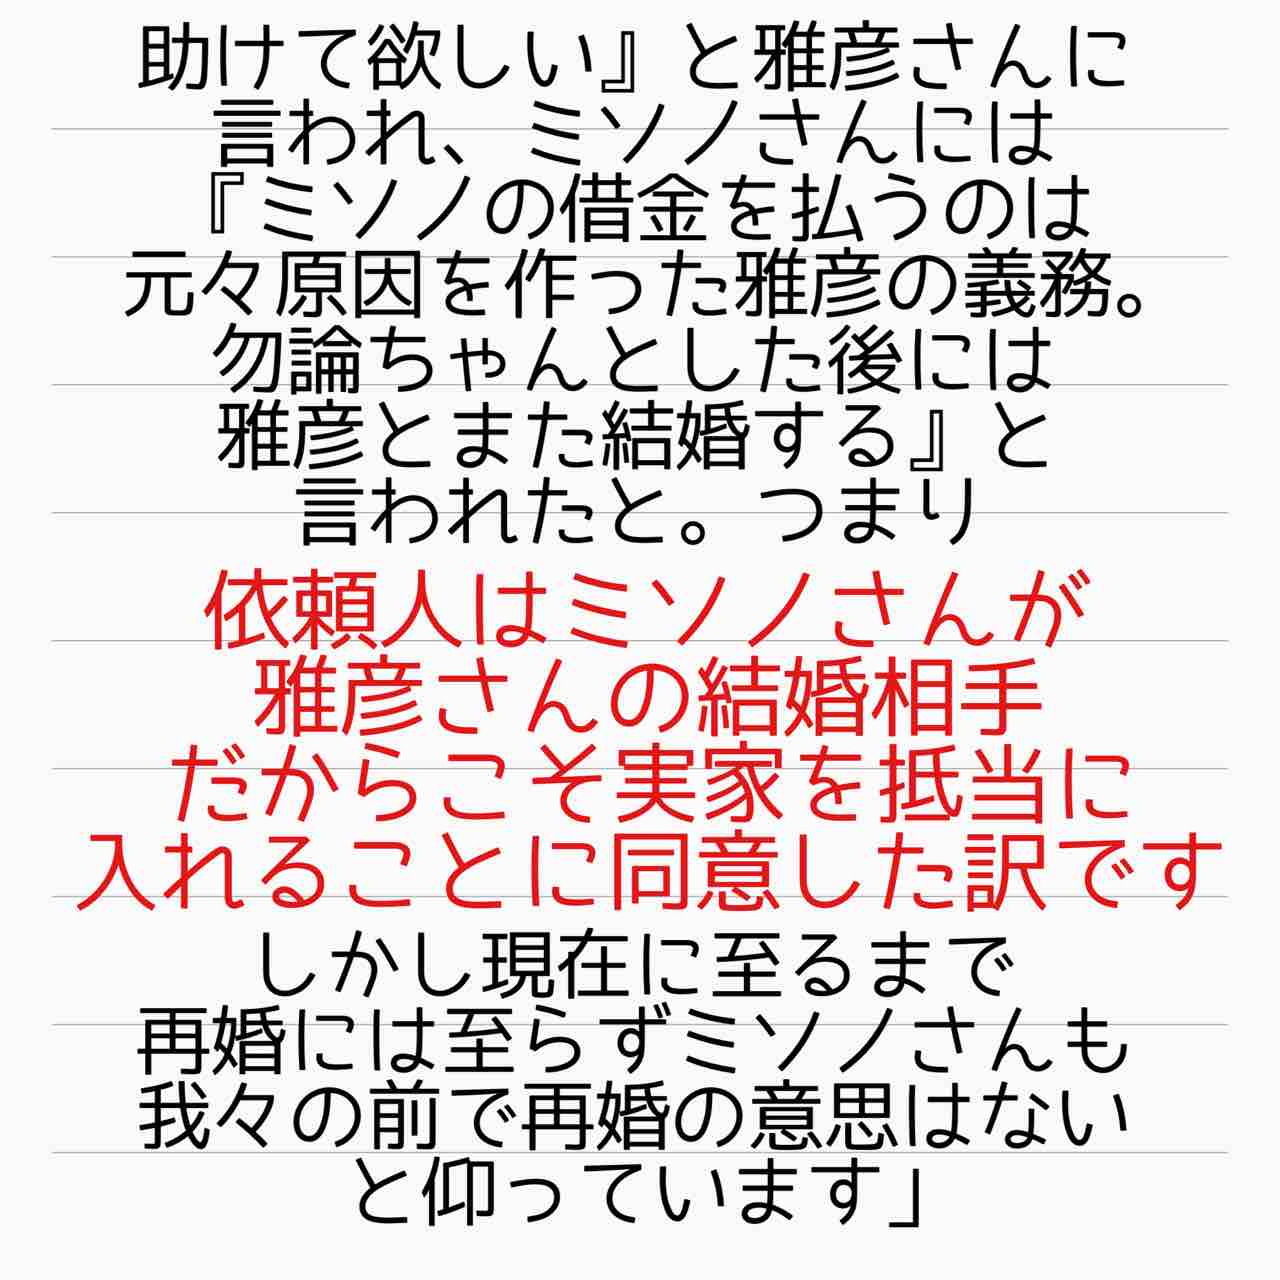 助けて欲しい』と雅彦さんに
言われ、ミソノさんには
『ミソノの借金を払うのは
元々原因を作った雅彦の義務。
勿論ちゃんとした後には
雅彦とまた結婚する』と
言われたと。つまり
依頼人はミソノさんが
雅彦さんの結婚相手
だからこそ実家を抵当に
入れることに同意した訳です
しかし現在に至るまで
再婚には至らずミソノさんも
我々の前で再婚の意思はない
と仰っています」